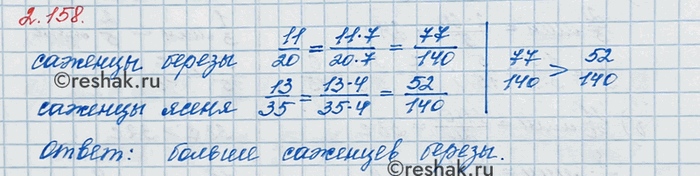 2.158.
саженцы березы 11/20 = 11·7/20·7 = 77/140 | 77/140 > 52/140
саженцы ясеня 13/35 = 13·4/35·4 = 52/140
Ответ: больше саженцев березы.
©reshak.ru
©reshak.ru